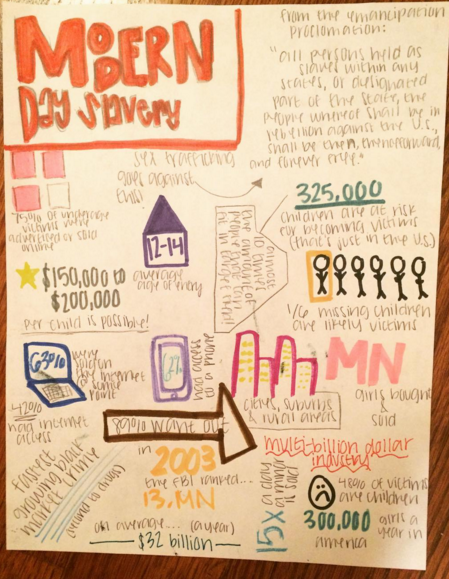 MODERN
Day Slavery
from the emancipation
proclamation:
"all persons held as
slaves within any
states, or designated
part of the state, the
people whereof shall be in
rebellion against the U.S.,
shall be then, thenceforward,
and forever free."
sex trafficking
goes against
this!
75% of underage
victims were
advertised or sold
online
12-14
average
age of entry
325,000
children are at risk
for becoming victims
(that's just in the U.S.)
$150,000 to
$200,000
per child is possible!
1/6 missing children
are likely victims
63%
were
sold on
the internet
at some
point
had access
to a phone
MN
girls bought
& sold
42%
had internet
access
cities, suburbs
& rural areas
89% want out
multi-billion dollar
industry
fastest
growing black
market crime
in
2003
the FBI ranked...
13. MN
on average.... (a year)
$32 billion
15x
a day
is sold
48% of victims
are children
300,000 girls
a year in
america